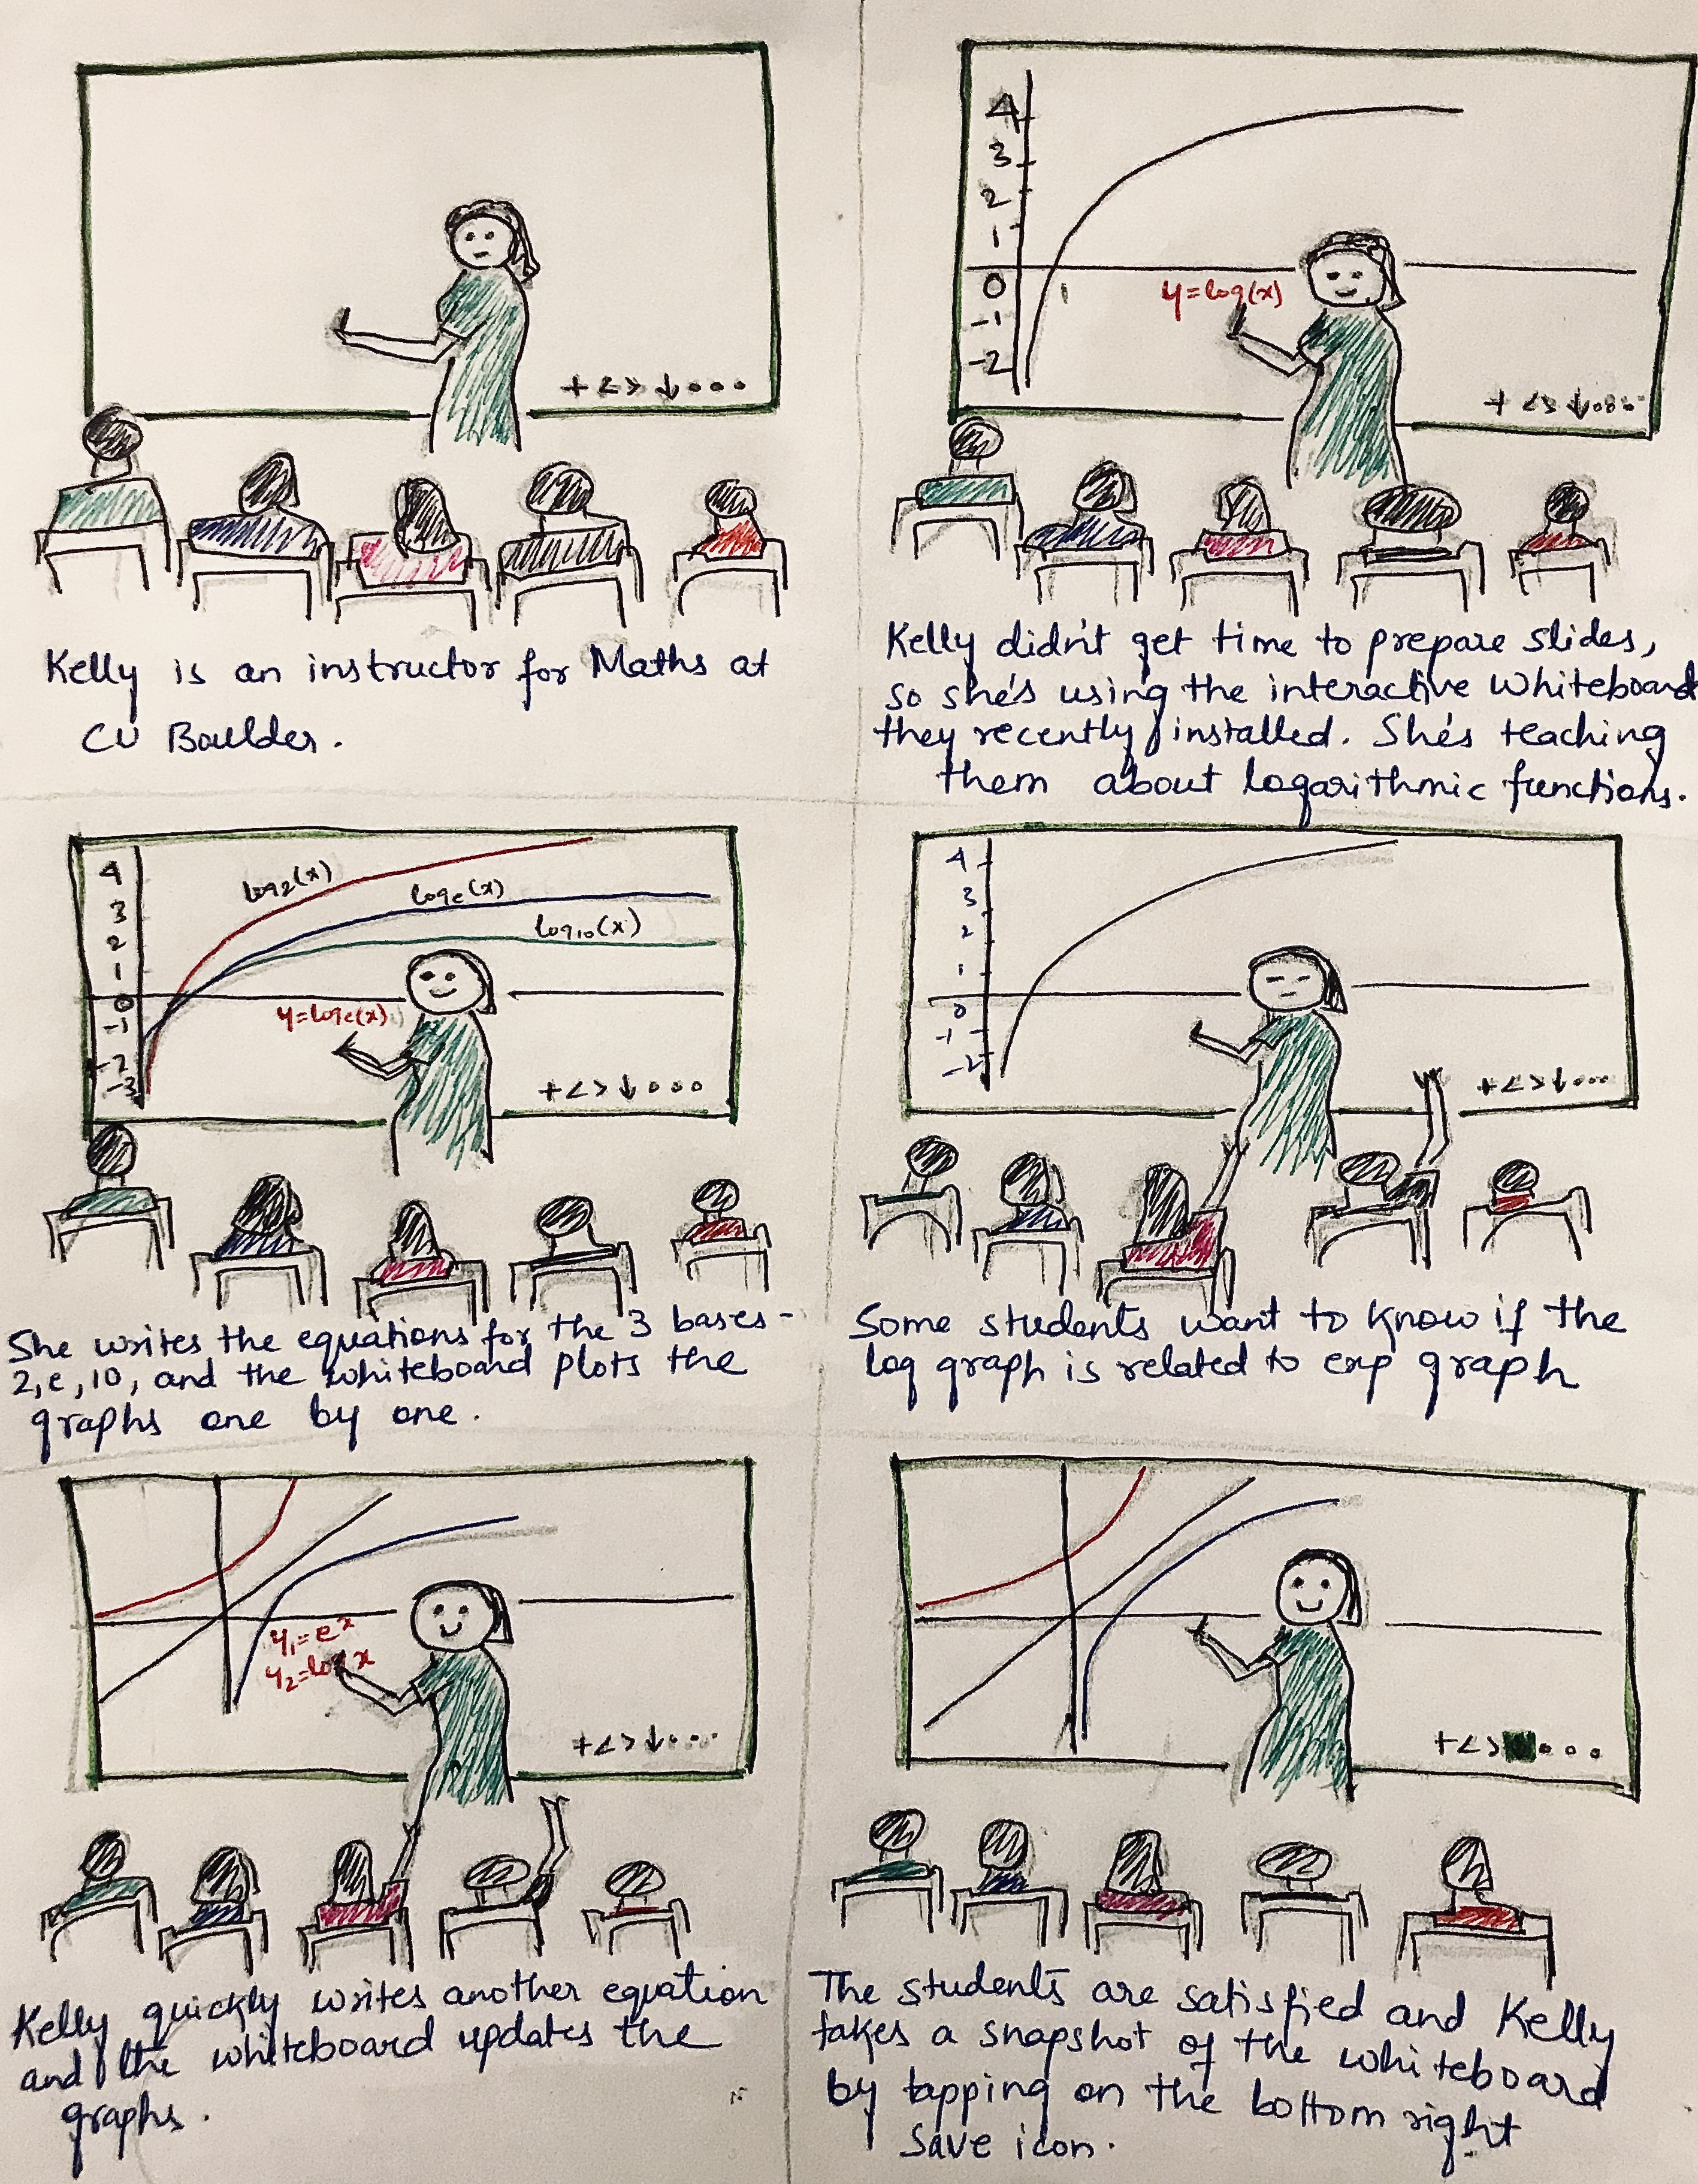 + < > ↓ ∘ ∘ ∘
Kelly is an instructor for Maths at
CU Boulder.
4
3
2
1
0
1
-1
-2
y=log(x)
+ < > ↓ ∘ ∘ ∘
Kelly didn't get time to prepare slides,
so she's using the interactive whiteboard
they recently installed. She's teaching
them about logarithmic functions.
4
3
2
1
0
-1
-2
-3
log2(x)
loge(x)
log10(x)
y=loge(x)
+ < > ↓ ∘ ∘ ∘
She writes the equations for the 3 bases -
2, e, 10, and the whiteboard plots the
graphs one by one.
4
3
2
1
0
-1
-2
+ < > ↓ ∘ ∘ ∘
Some students want to know if the
log graph is related to exp graph
y₁=eˣ
y₂=log x
+ < > ↓ ∘ ∘ ∘
Kelly quickly writes another equation
and the whiteboard updates the
graphs.
+ < > ∘ ∘ ∘
The students are satisfied and Kelly
takes a snapshot of the whiteboard
by tapping on the bottom right
save icon.